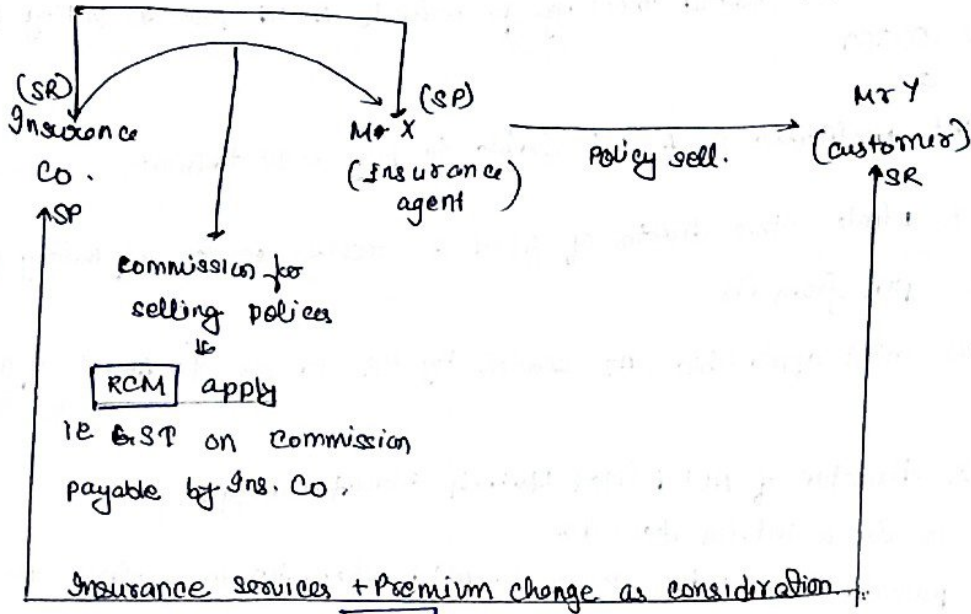 (SR)
Insurance
Co.
SP
(SP)
Mr X
(Insurance
agent)
Policy sell.
Mr Y
(customer)
SR
commission for
selling polices
RCM apply
ie GST on commission
payable by Ins. Co.
Insurance services + Premium change as consideration